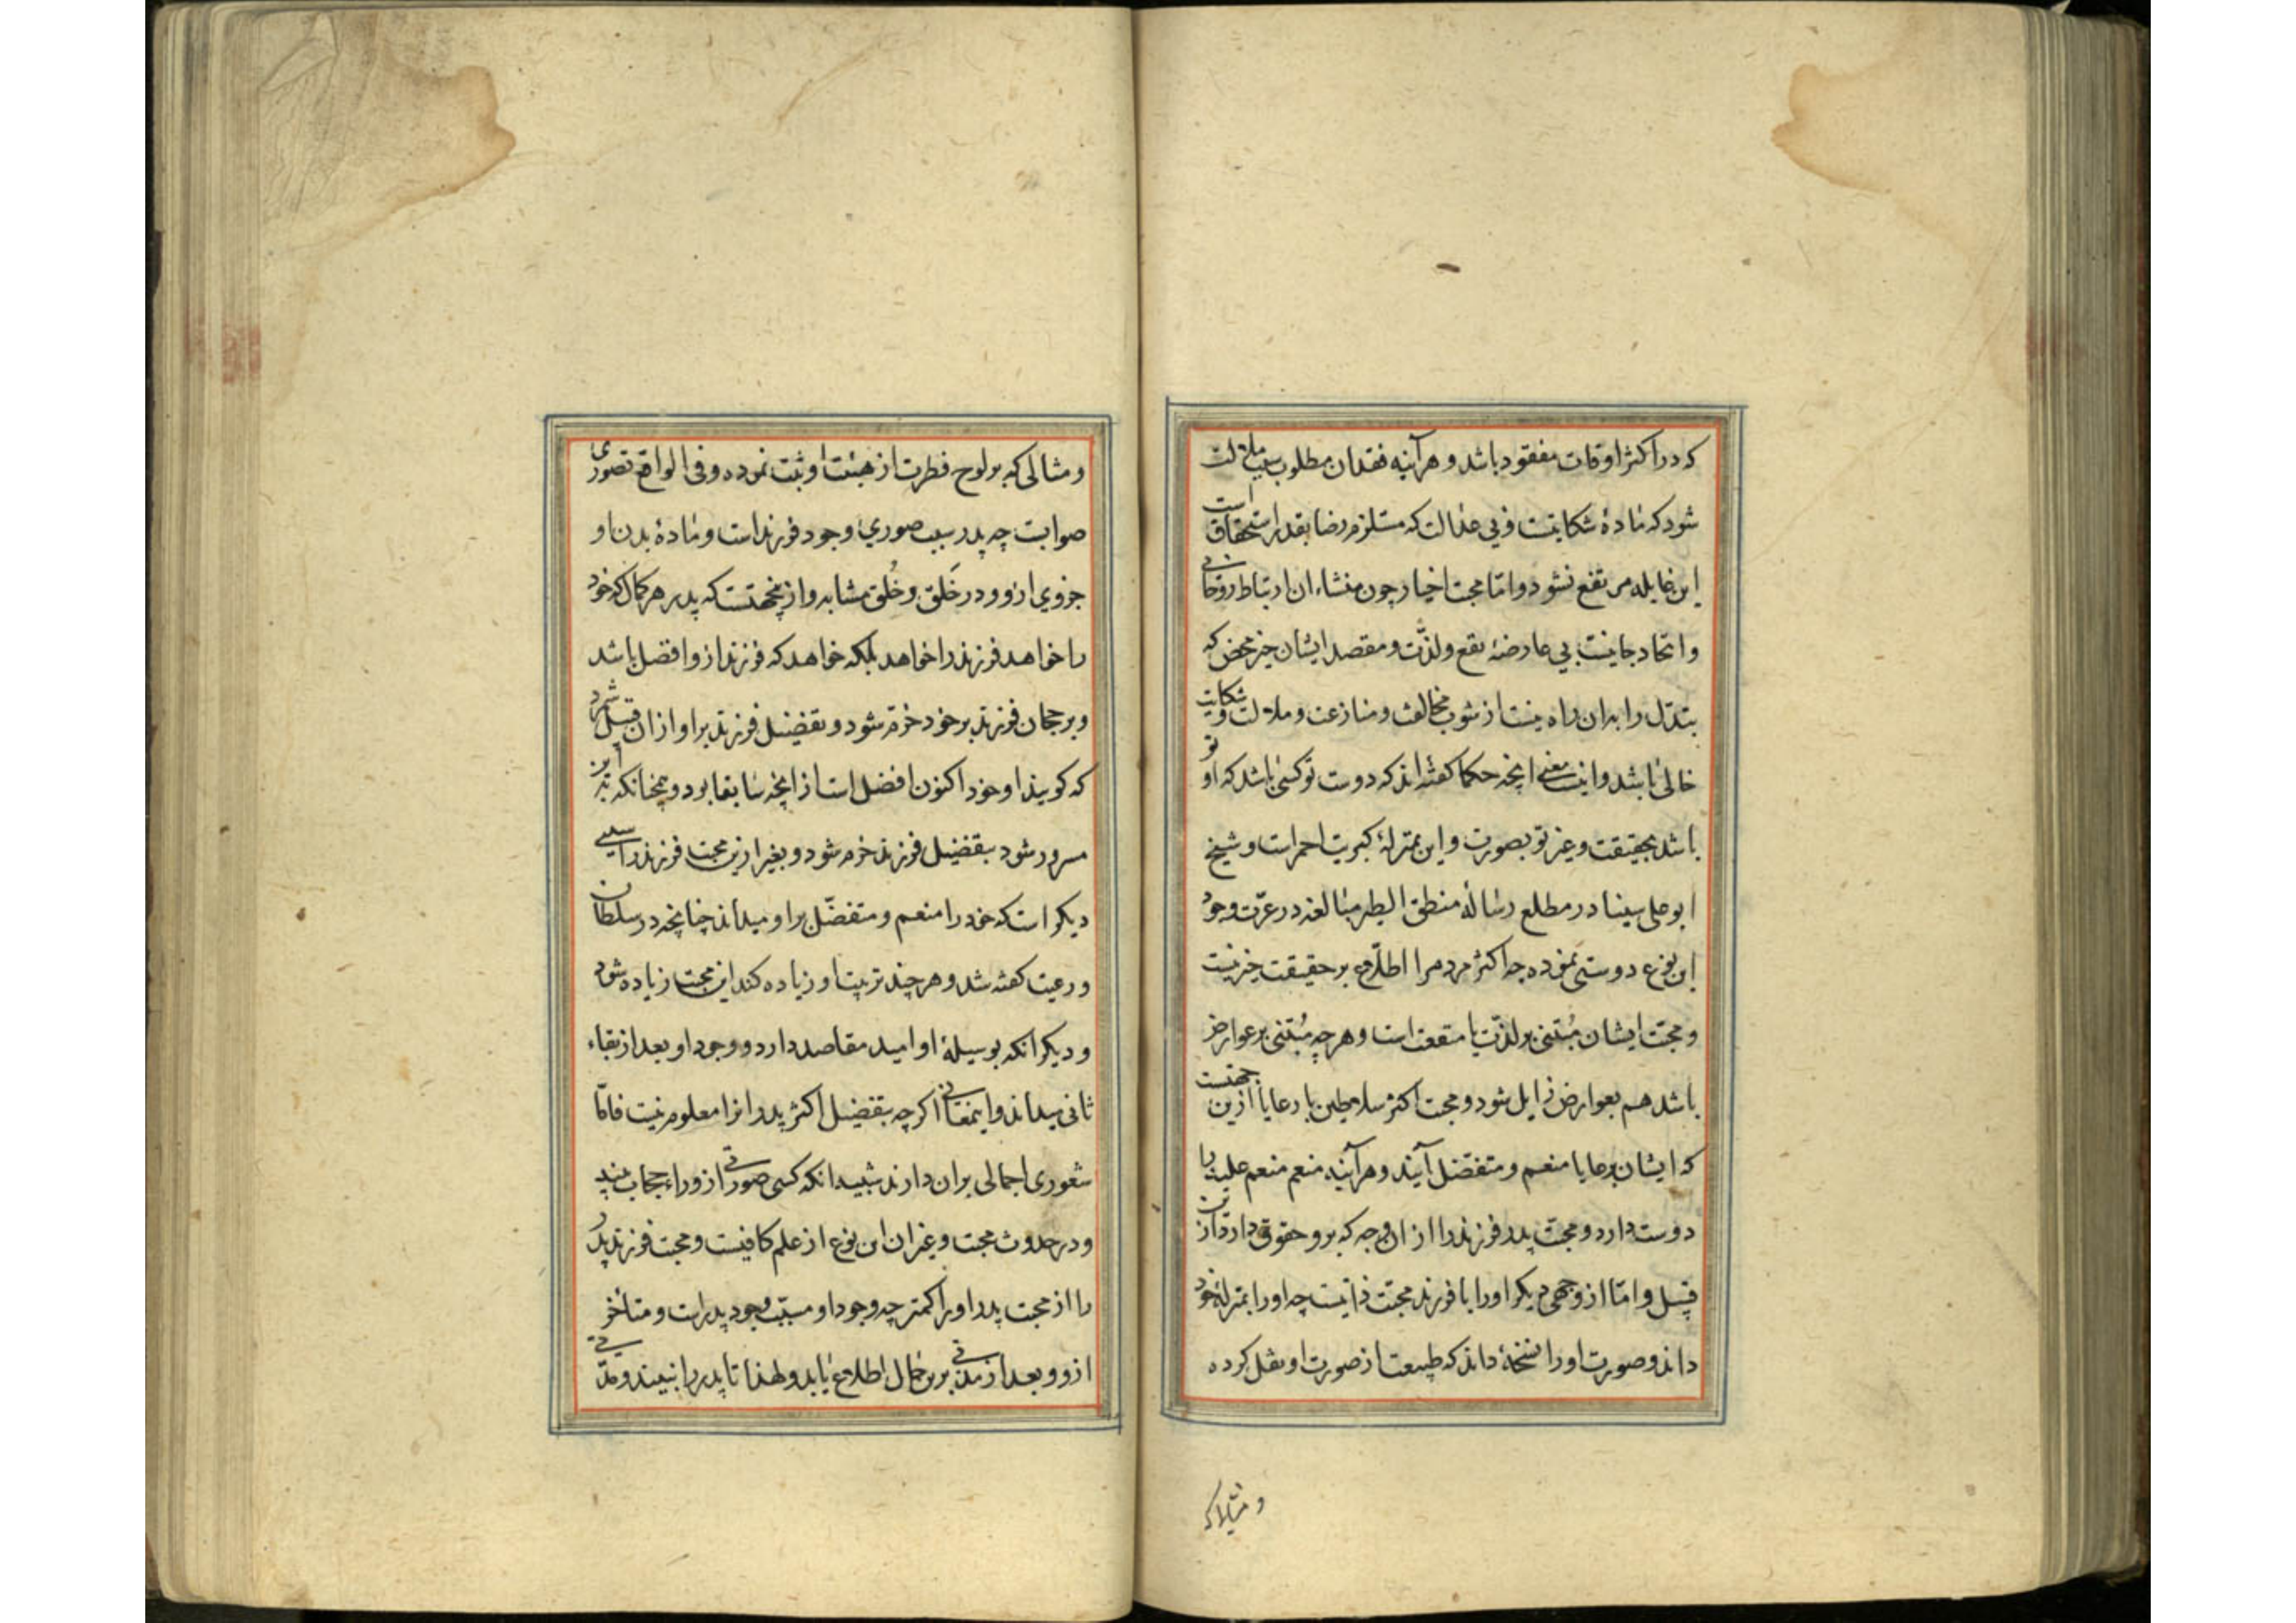 که در اکثر اوقات مفقود باشد و هرآینه فقدان مطلوب سبب ملالت
شود که مادهٔ شکایتست و بی عدالت که مستلزم رضا بقدر استحقاق است
این غایله مرتفع نشود و اما محبت اخیار چون منشاء ان ارتباط روحانی
و اتحاد جانیست بی عارضهٔ نفع و لذّت و مقصد ایشان خیر محض که
تبدّل را بدان راه نیست از شوب مخالفت و منازعت و ملالت و شکایت
خالی باشد و اینست معنی انچه حکما کفته اند که دوست تو کسی باشد که او تو
باشد بحقیقت و غیر تو بصورت و این بمنزلهٔ کبریت احمر است و شیخ
ابو علی سینا در مطلع رسالهٔ منطق الطیر مبالغه در عزّت وجود
این نوع دوستی نموده چه اکثر مردم را اطلاع بر حقیقت خیر نیست
و محبّت ایشان مُبتنی بر لذّت یا منفعت است و هر چه مُبتنی بر عوارض
باشد هم بعوارض زایل شود و محبت اکثر سلاطین با رعایا ازین جهتست
که ایشان بر رعایا منعم و متفضّل آیند و هرآینه منعم منعم علیه را
دوست دارد و محبّت پدر فرزند را از ان وجه که برو حقوق دارد ازین
قبیل و امّا از وجهی دیکر او را با فرزند محبّت ذاتیست چه او را بمنزلهٔ خود
داند و صورت او را نسخهٔ داند که طبیعت از صورت او نقل کرده
و مثالی که
و مثالی که بر لوح فطرت از هیئت او ثبت نموده و فی الواقع تصوری
صوابست چه پدر سبب صوری وجود فرزند است و مادهٔ بدن او
جزوی از و و در خَلق و خُلق مشابه و ازینجهتست که پدر هر کمال که خود
را خواهد فرزند را خواهد بلکه خواهد که فرزند ازو افضل باشد
و برجحان فرزند بر خود خرّم شود و تفضیل فرزند بر او از ان قبیل شمرد
که کویند او خود اکنون افضل است از انچه سابقا بود و همچنانکه بدین
مسرور شود بتفضیل فرزند خرم شود و بغیر ازین محبت فرزند را سببی
دیکر است که خود را منعم و متفضّل بر او میداند چنانچه در سلطان
و رعیت کفته شد و هر چند تربیت او زیاده کند این محبت زیاده شود
و دیکر انکه بوسیلهٔ او امید مقاصد دارد و وجود او بعد از بقاء
ثانی میداند و اینمعانی اکرچه بتفضیل اکثر پدر انرا معلوم نیست فامّا
شعوری اجمالی بران دارند شبیه انکه کسی صورتی از وراء حجاب بیند
و در حدوث محبت و غیر ان این نوع از علم کافیست و محبت فرزند پدر
را از محبت پدر او را کمتر چه وجود او مسبّب وجود پدرست و متأخر
ازو و بعد از مدّتی برین حال اطلاع یابد و لهذا تا پدر را نبیند و مدّتی